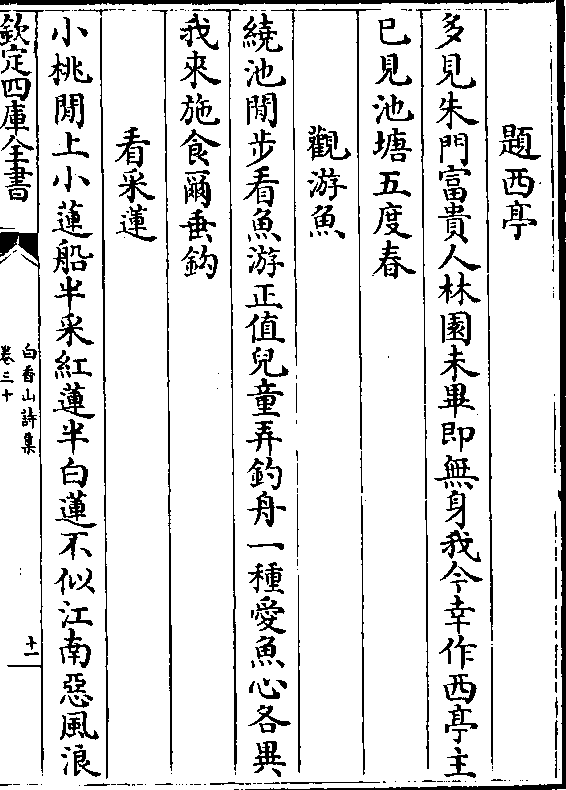 題西亭
多見朱門富貴人林園未畢即無身我今幸作西亭主
已見池塘五度春
觀游魚
繞池閒步看魚游正值兒童弄釣舟一種愛魚心各異
我來施食爾垂鈎
看采蓮
小桃閒上小蓮船半采紅蓮半白蓮不似江南惡風浪
欽定四庫全書
白香山詩集
卷三十
十一